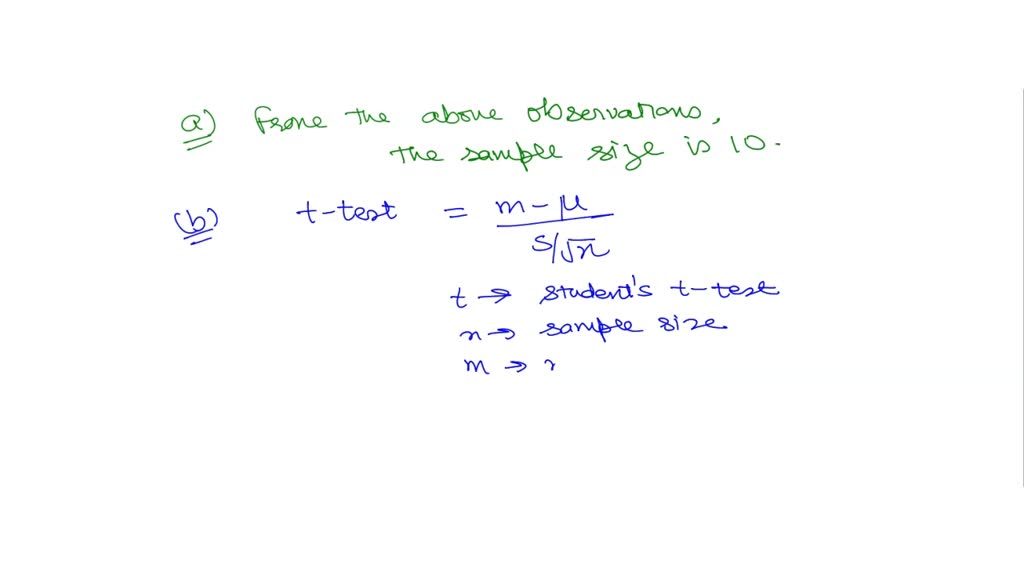 a) Frome the above observations,
the sample size is 10.
(b) t-test = m - μ / S/√n
t → student's t-test
n → sample size.
m →